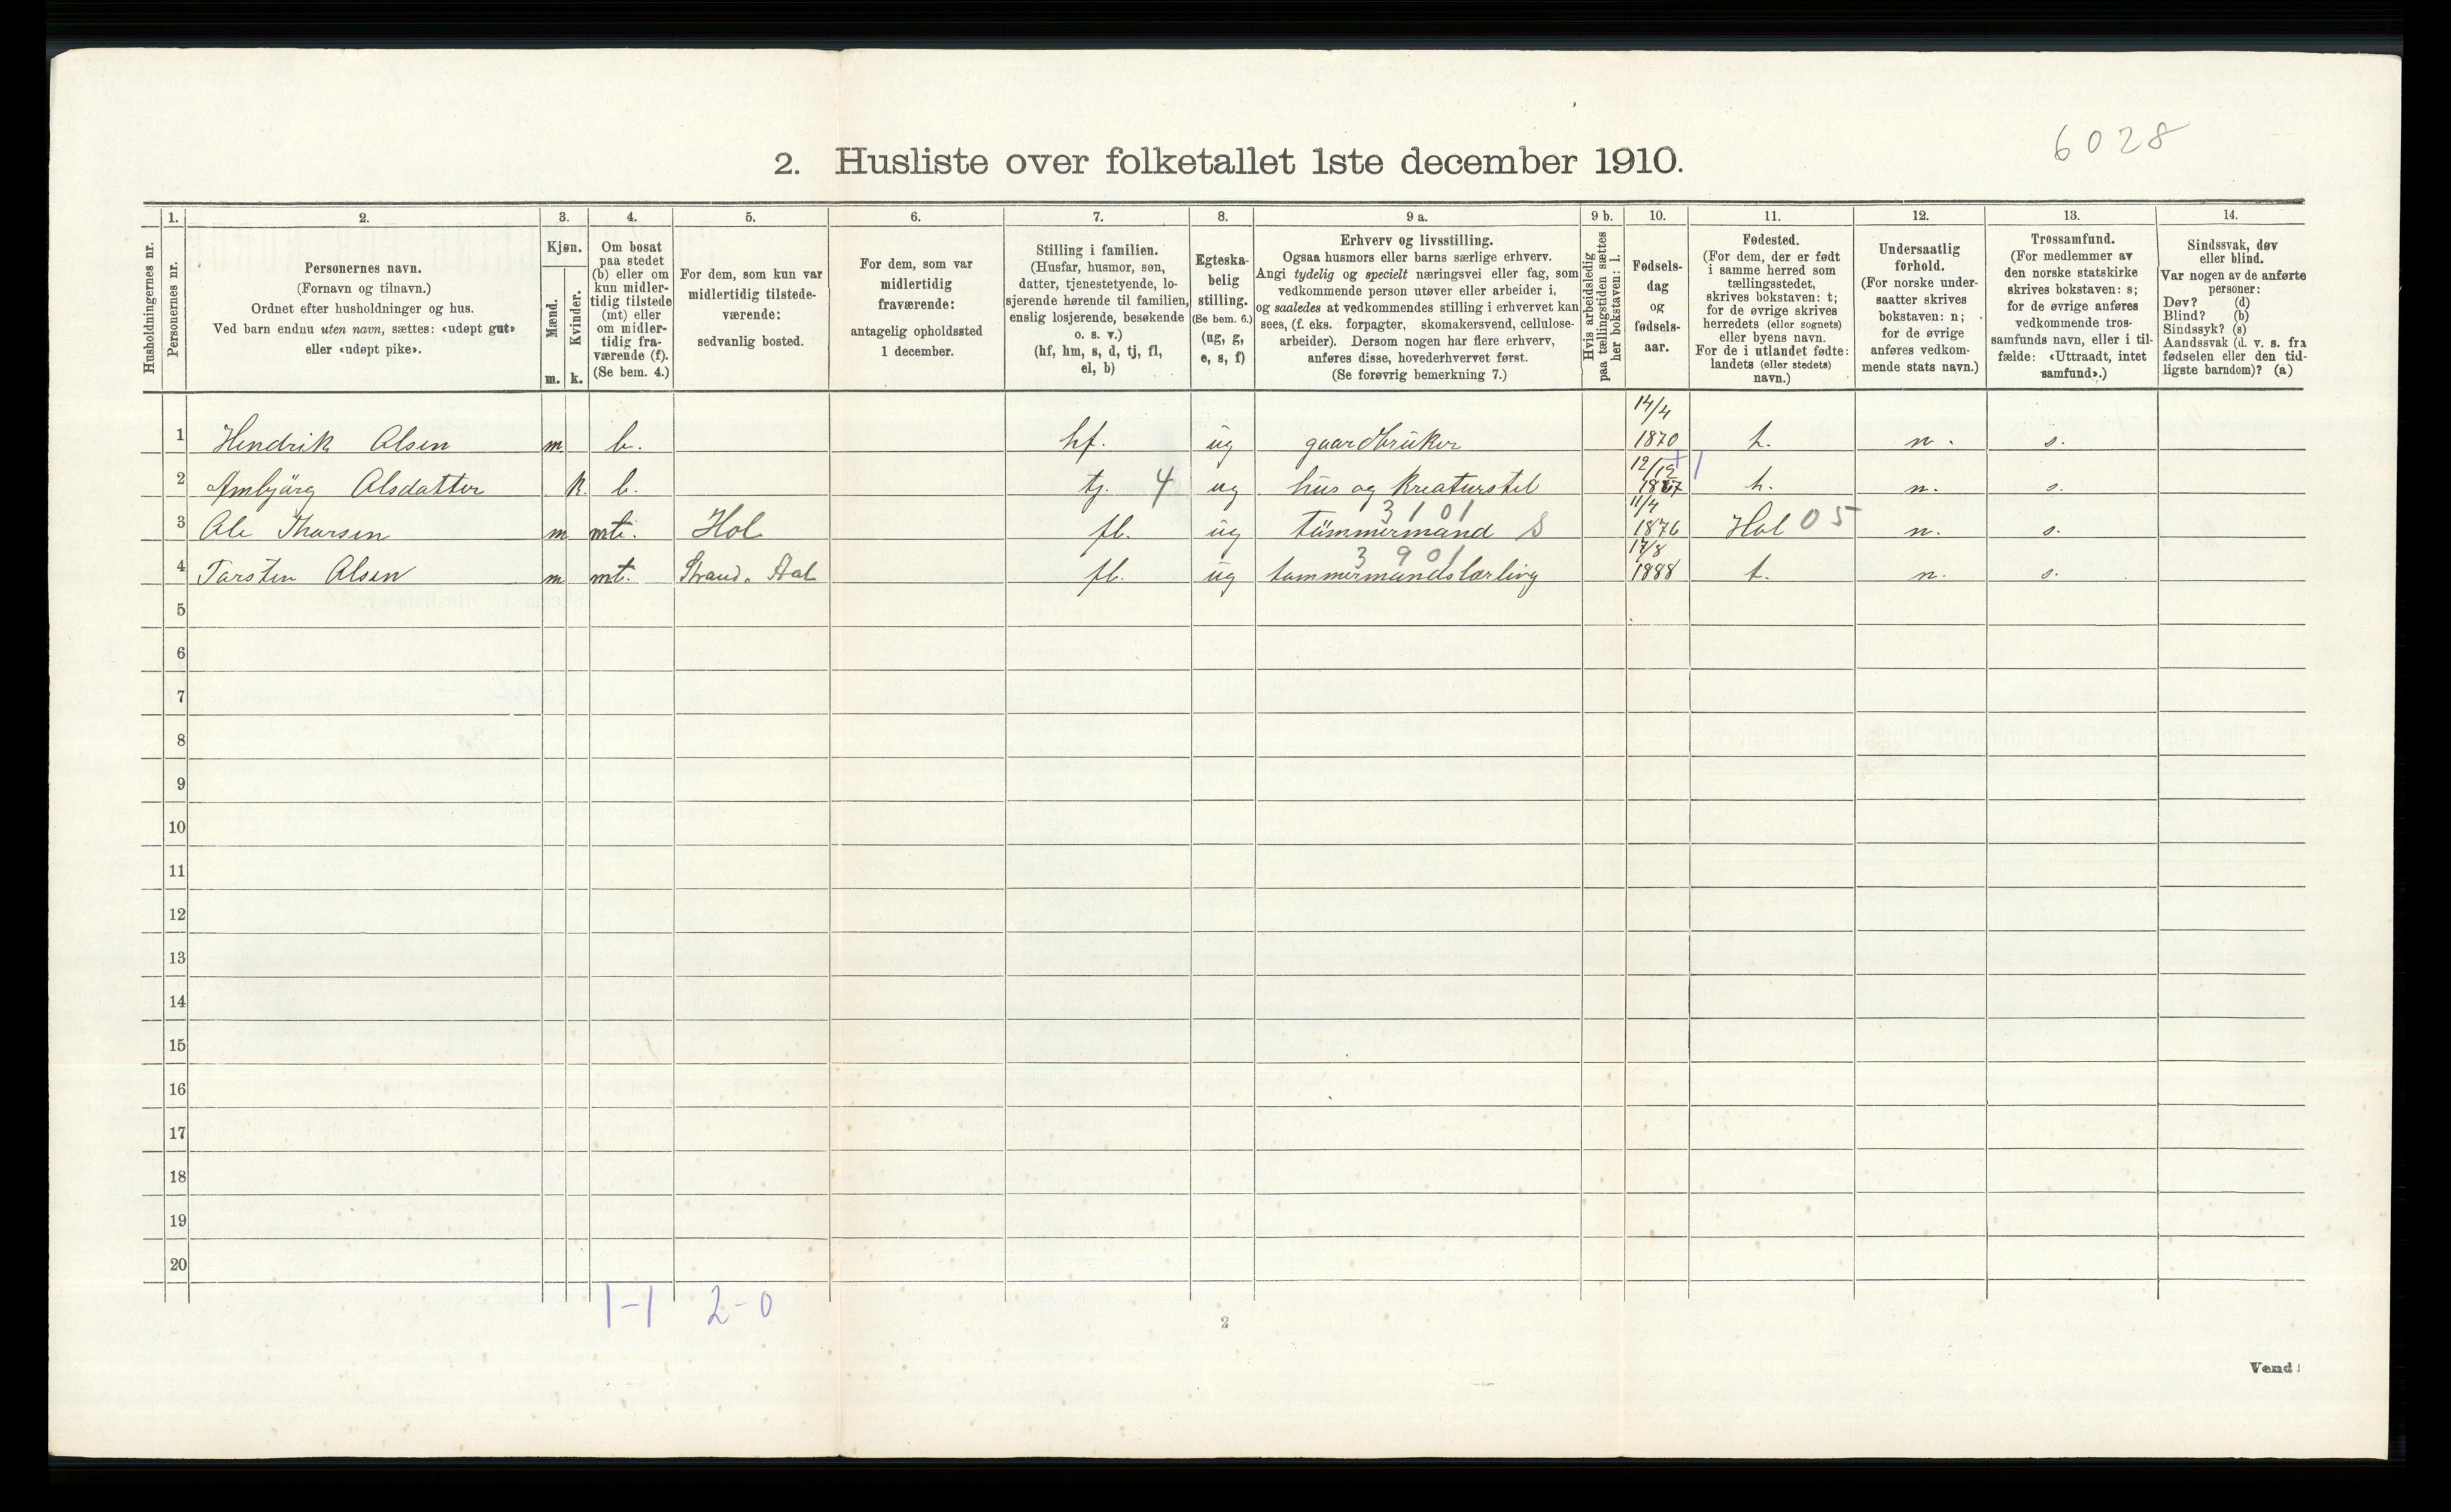 6028
2. Husliste over folketallet 1ste december 1910.
1. 2. 3. 4. 5. 6. 7. 8. 9 a. 9 b. 10. 11. 12. 13. 14.
Husholdningernes nr.
Personernes nr.
Personernes navn.
(Fornavn og tilnavn.)
Ordnet efter husholdninger og hus.
Ved barn endnu uten navn, sættes: «udøpt gut»
eller «udøpt pike».
Kjøn.
Mænd.
Kvinder.
m. k.
Om bosat
paa stedet
(b) eller om
kun midler-
tidig tilstede
(mt) eller
om midler-
tidig fra-
værende (f).
(Se bem. 4.)
For dem, som kun var
midlertidig tilstede-
værende:
sedvanlig bosted.
For dem, som var
midlertidig
fraværende:
antagelig opholdssted
1 december.
Stilling i familien.
(Husfar, husmor, søn,
datter, tjenestetyende, lo-
sjerende hørende til familien,
enslig losjerende, besøkende
o. s. v.)
(hf, hm, s, d, tj, fl,
el, b)
Egteska-
belig
stilling.
(Se bem. 6.)
(ug, g,
e, s, f)
Erhverv og livsstilling.
Ogsaa husmors eller barns særlige erhverv.
Angi tydelig og specielt næringsvei eller fag, som
vedkommende person utøver eller arbeider i,
og saaledes at vedkommendes stilling i erhvervet kan
sees, (f. eks. forpagter, skomakersvend, cellulose-
arbeider). Dersom nogen har flere erhverv,
anføres disse, hovederhvervet først.
(Se forøvrig bemerkning 7.)
Hvis arbeidsledig
paa tællingstiden sættes
her bokstaven: l.
Fødsels-
dag
og
fødsels-
aar.
Fødested.
(For dem, der er født
i samme herred som
tællingsstedet,
skrives bokstaven: t;
for de øvrige skrives
herredets (eller sognets)
eller byens navn.
For de i utlandet fødte:
landets (eller stedets)
navn.)
Undersaatlig
forhold.
(For norske under-
saatter skrives
bokstaven: n;
for de øvrige
anføres vedkom-
mende stats navn.)
Trossamfund.
(For medlemmer av
den norske statskirke
skrives bokstaven: s;
for de øvrige anføres
vedkommende tros-
samfunds navn, eller i til-
fælde: «Uttraadt, intet
samfund».)
Sindssvak, døv
eller blind.
Var nogen av de anførte
personer:
Døv? (d)
Blind? (b)
Sindssyk? (s)
Aandssvak (d. v. s. fra
fødselen eller den tid-
ligste barndom)? (a)
1 Hendrik Olsen m b. hf. ug gaardbruker 14/4 1870 t. n. s.
2 Ambjörg Olsdatter k. b. tj. 4 ug hus og kreaturstel 12/12 1867 t. n. s.
3 Ole Thorsen m mt. Hol fl. ug Tømmermand S 3101 11/4 1876 Hol 05 n. s.
4 Torsten Olsen m mt. Strand, Aal fl. ug tømmermandslærling 3901 17/8 1888 t. n. s.
5
6
7
8
9
10
11
12
13
14
15
16
17
18
19
20
1-1 2-0
2
Vend!